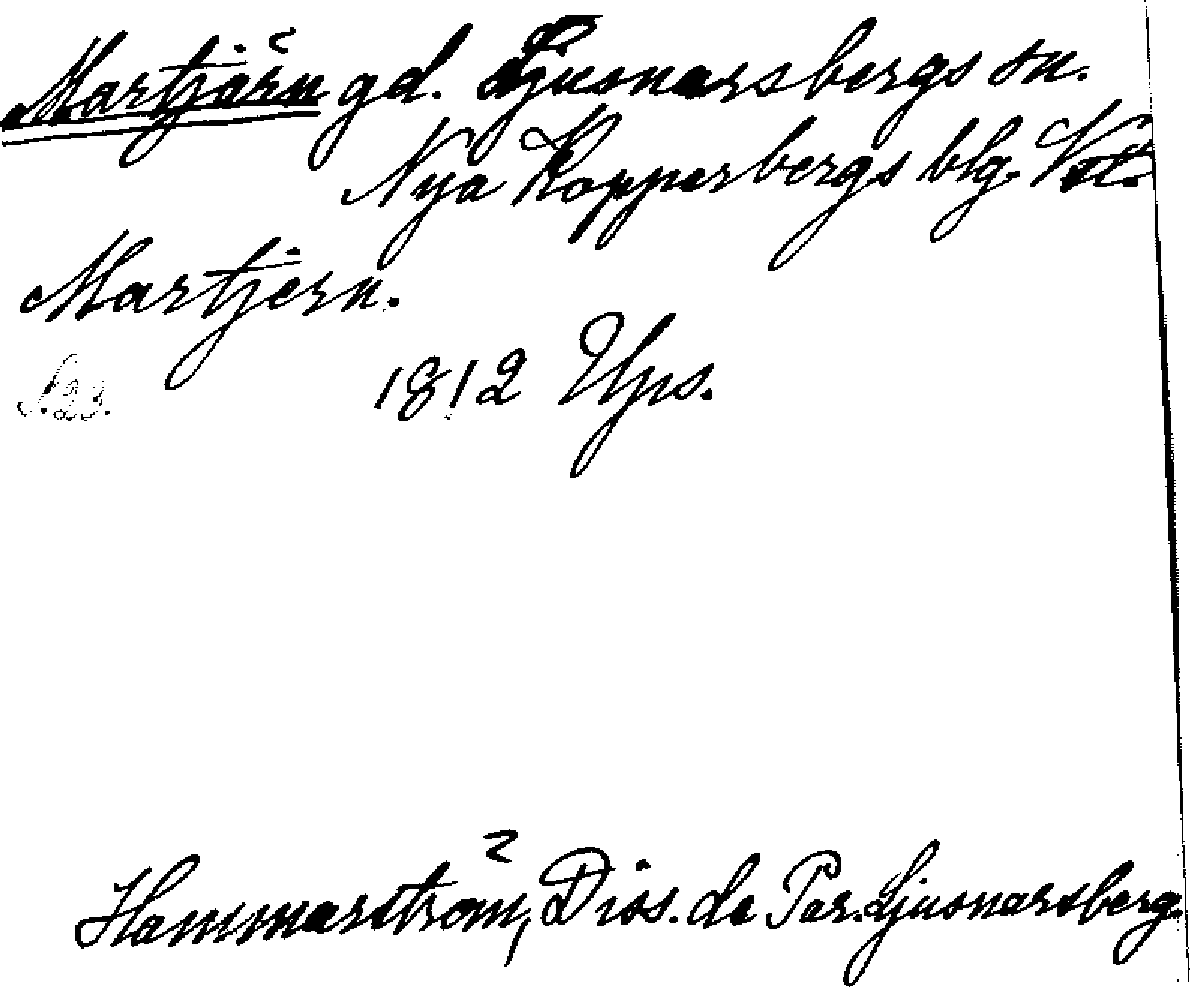 Martjärn gd. Ljusnarsbergs sn.
Nya Kopparbergs blg. Vstl.
Martjern.
S.23. 1812 Ups.
Hammarström, Diss. de Par. Ljusnarsberg.